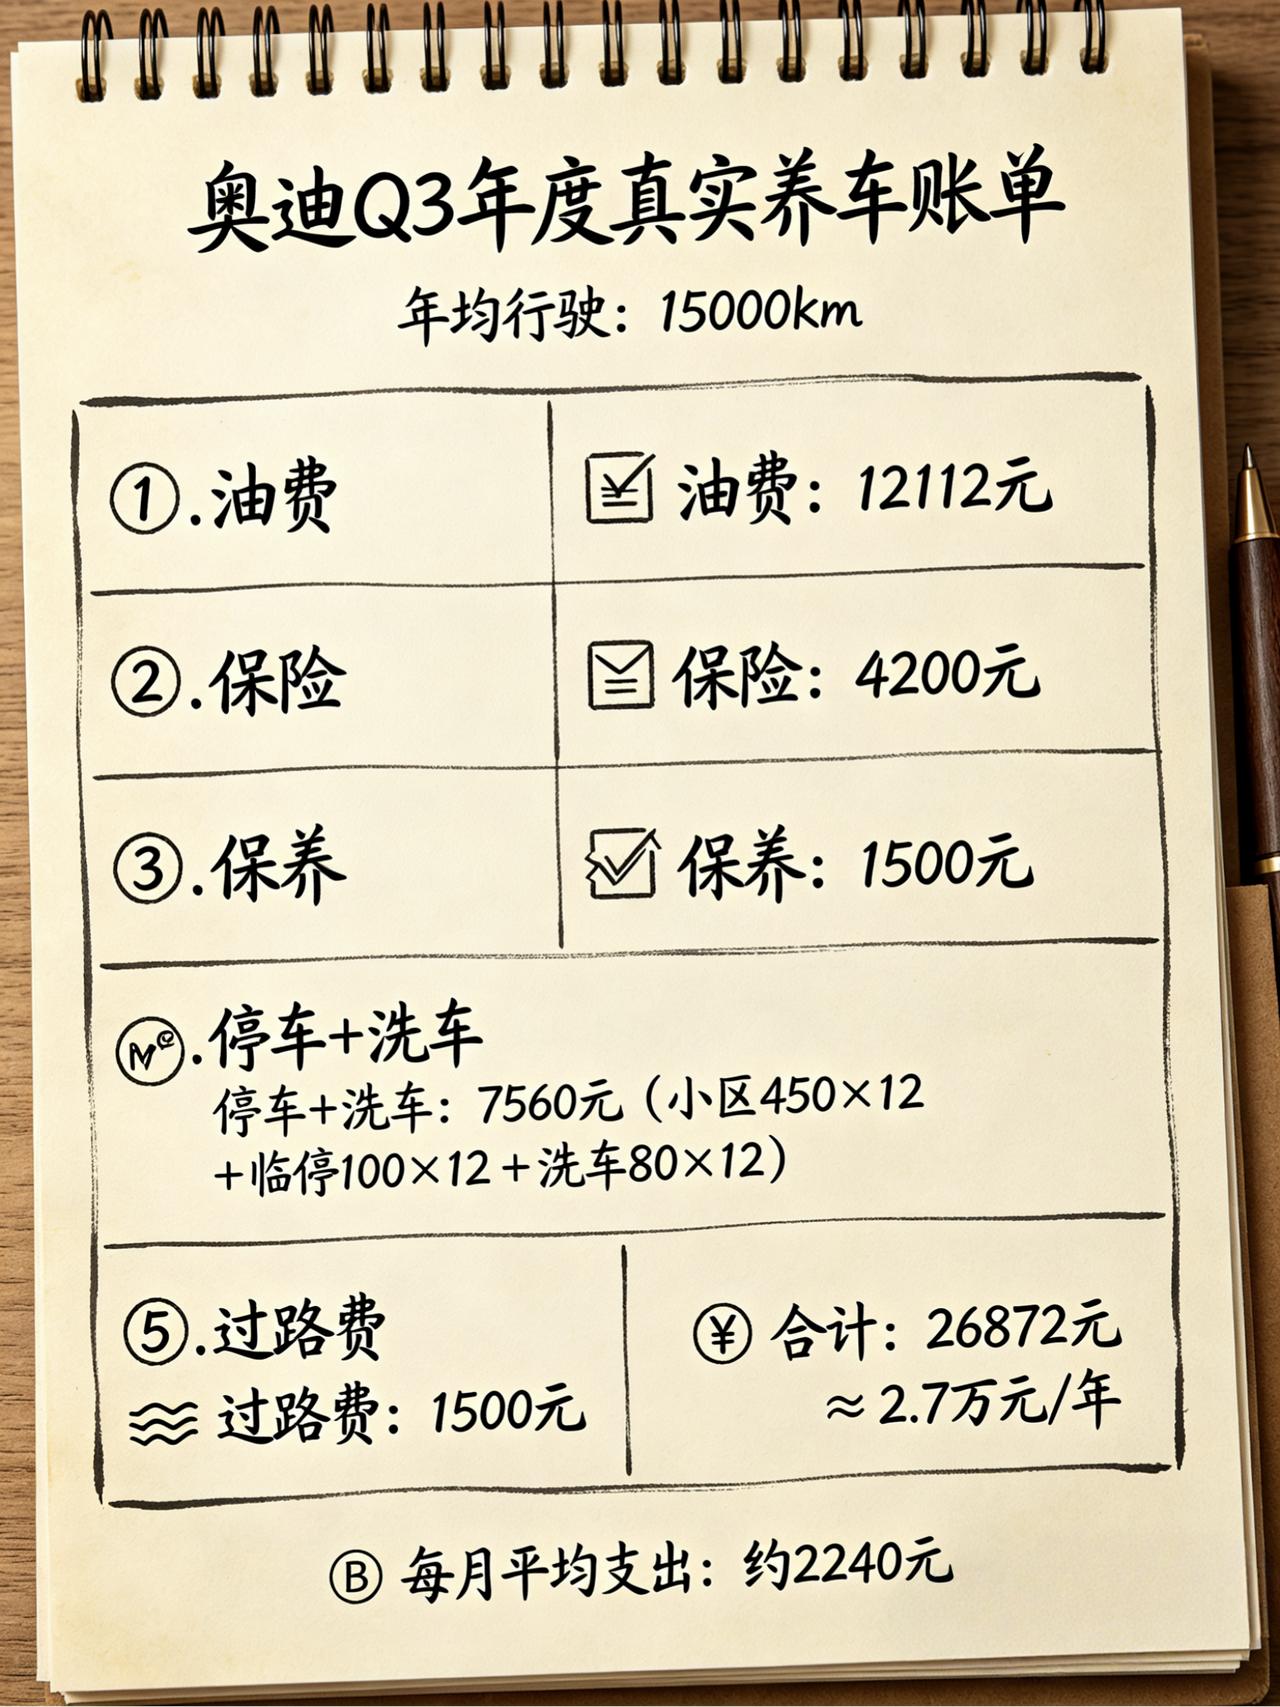 奥迪Q3年度真实养车账单
年均行驶：15000km
①.油费
油费：12112元
②.保险
保险：4200元
③.保养
保养：1500元
.停车+洗车
停车+洗车：7560元（小区450×12
+临停100×12+洗车80×12）
⑤.过路费
过路费：1500元
¥ 合计：26872元
≈2.7万元/年
Ⓑ 每月平均支出：约2240元